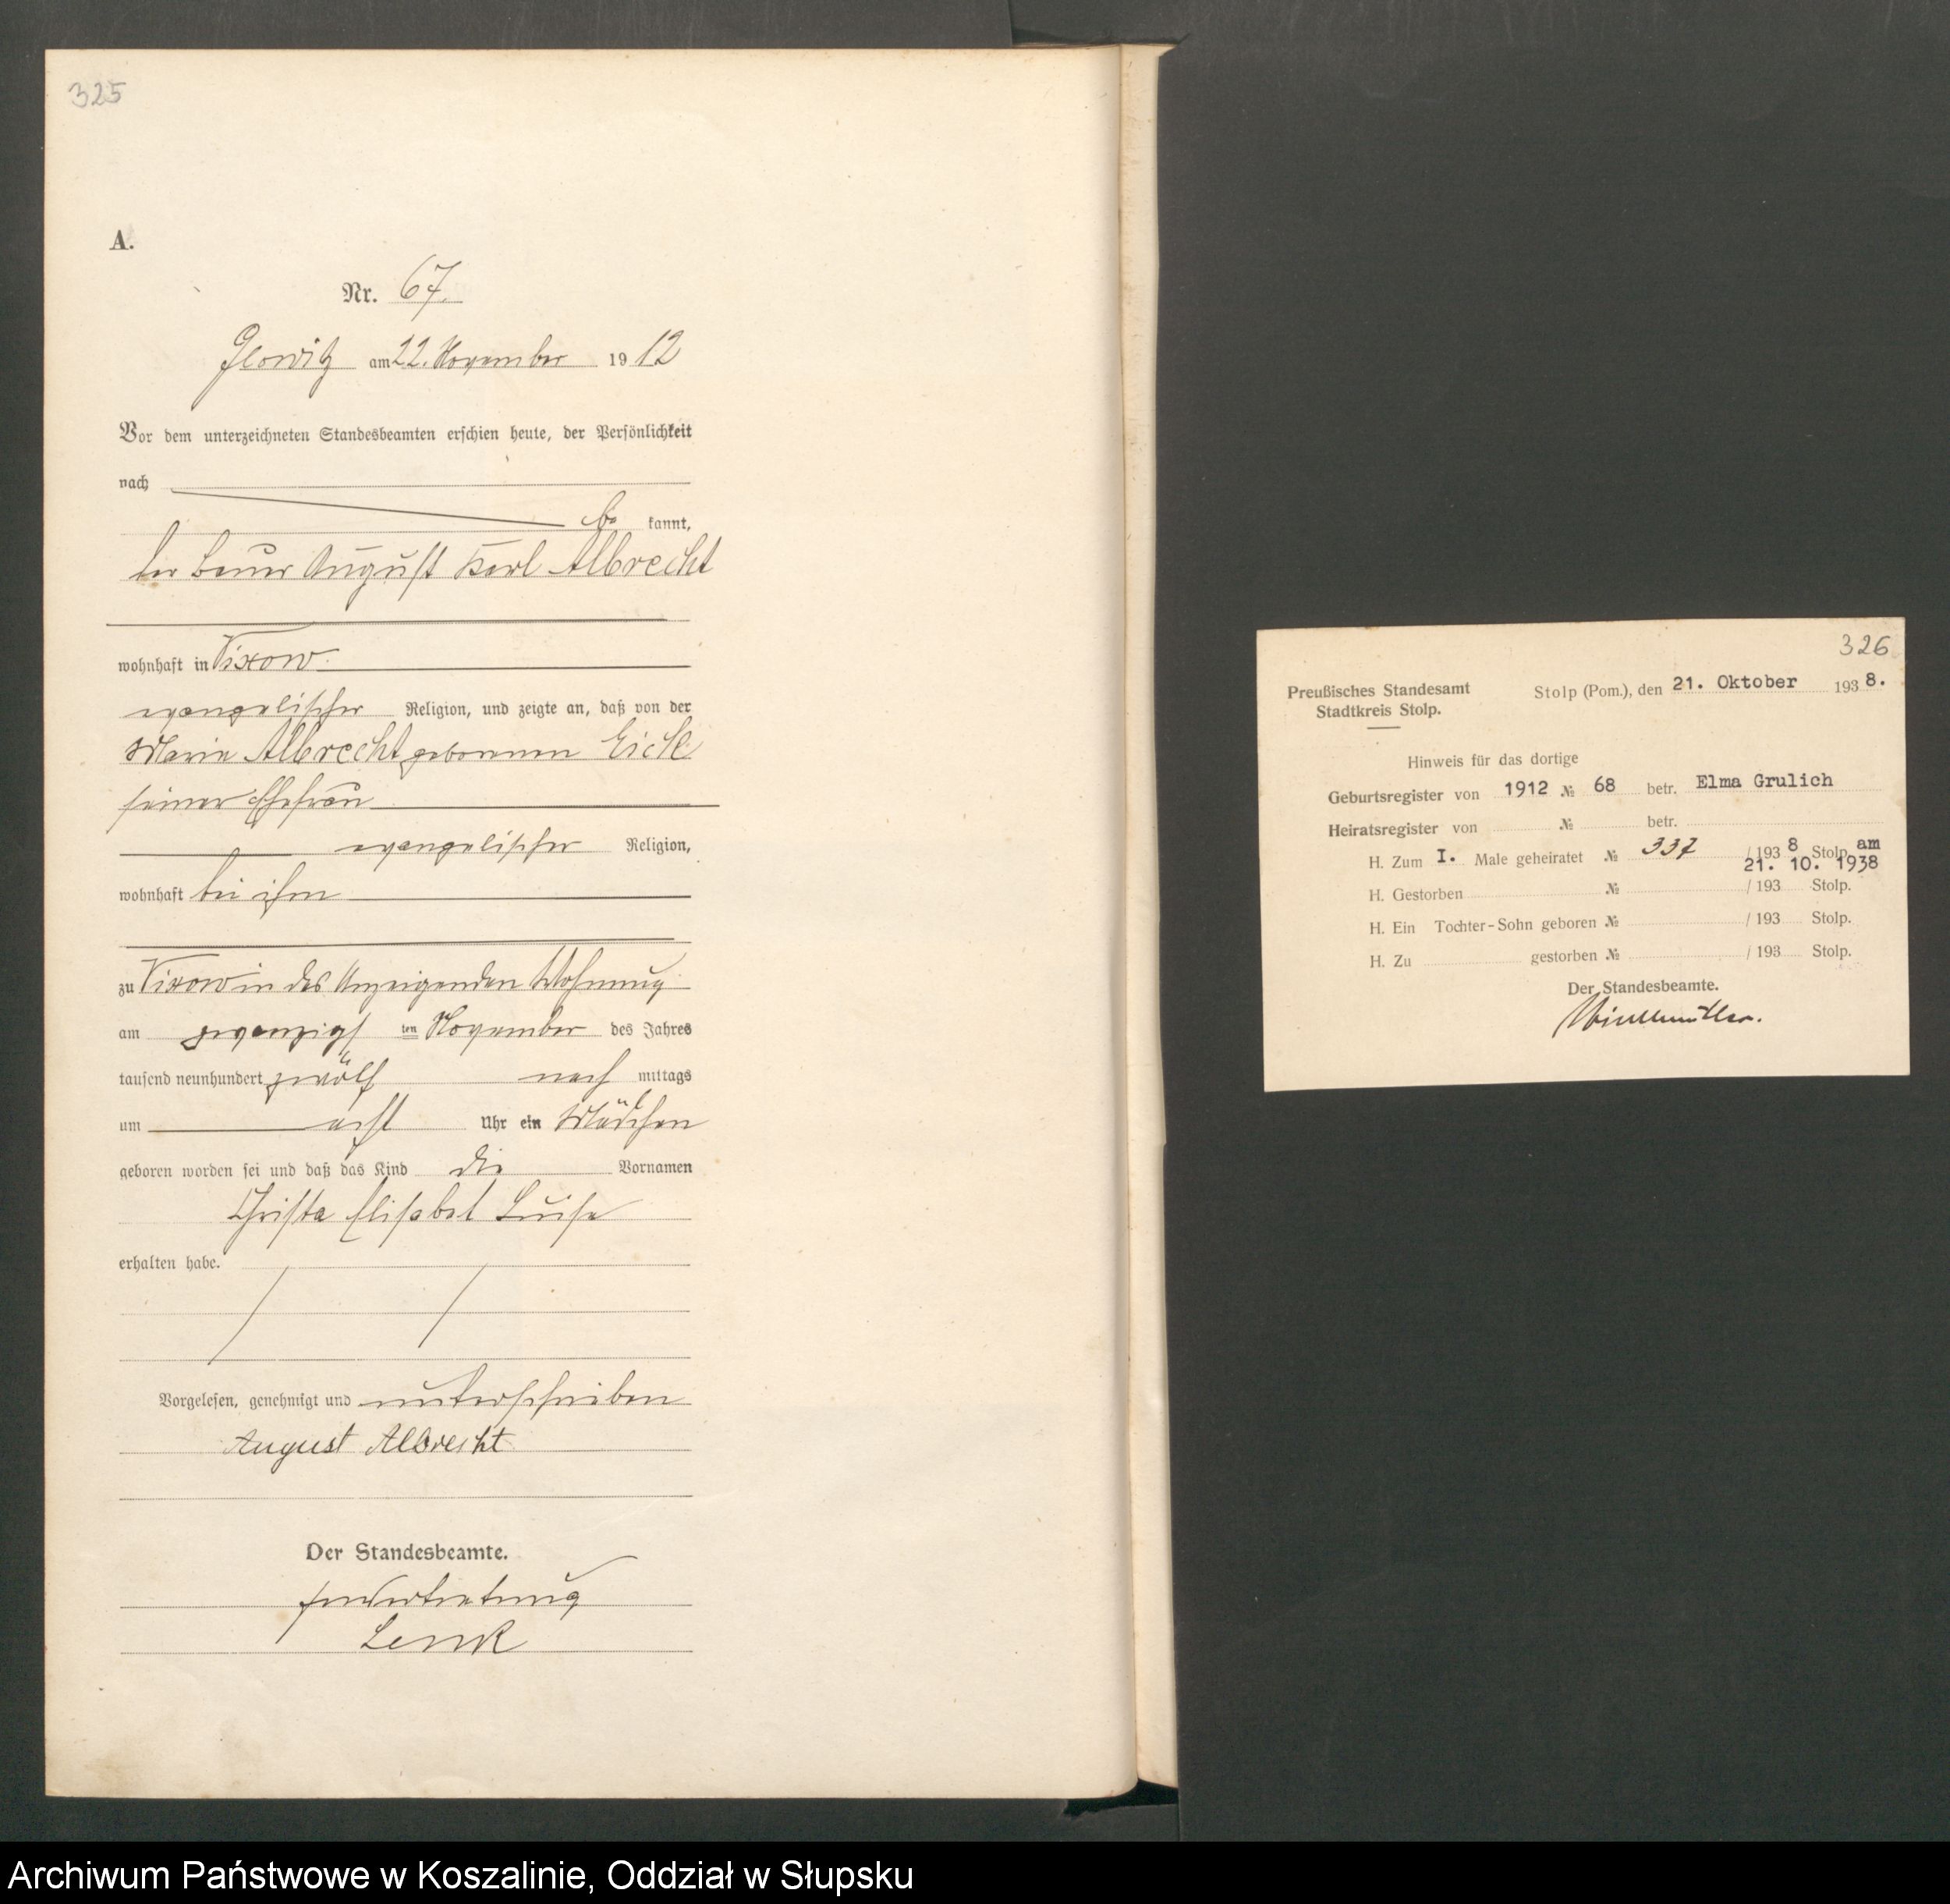 325
A.
Nr. 67.
Glowitz am 22. November 1912
Vor dem unterzeichneten Standesbeamten erschien heute, der Persönlichkeit
nach
be kannt,
der Bauer August Karl Albrecht
wohnhaft in Vixow.
evangelischer Religion, und zeigte an, daß von der
Marie Albrecht geborenen Eick
seiner Ehefrau
evangelischer Religion,
wohnhaft bei ihm
zu Vixow in des Anzeigenden Wohnung
am zwanzigsten November des Jahres
tausend neunhundert zwölf nach mittags
um acht Uhr ein Mädchen
geboren worden sei und daß das Kind die Vornamen
Christa Elisabet Luise
erhalten habe.
Vorgelesen, genehmigt und unterschrieben
August Albrecht
Der Standesbeamte.
In Vertretung
Lenk
326
Preußisches Standesamt
Stadtkreis Stolp.
Stolp (Pom.), den 21. Oktober 1938.
Hinweis für das dortige
Geburtsregister von 1912 № 68 betr. Elma Grulich
Heiratsregister von № betr.
H. Zum I. Male geheiratet № 337 / 193 8 Stolp am
21. 10. 1938
H. Gestorben № / 193 Stolp.
H. Ein Tochter-Sohn geboren № / 193 Stolp.
H. Zu gestorben № / 193 Stolp.
Der Standesbeamte.
Archiwum Państwowe w Koszalinie, Oddział w Słupsku